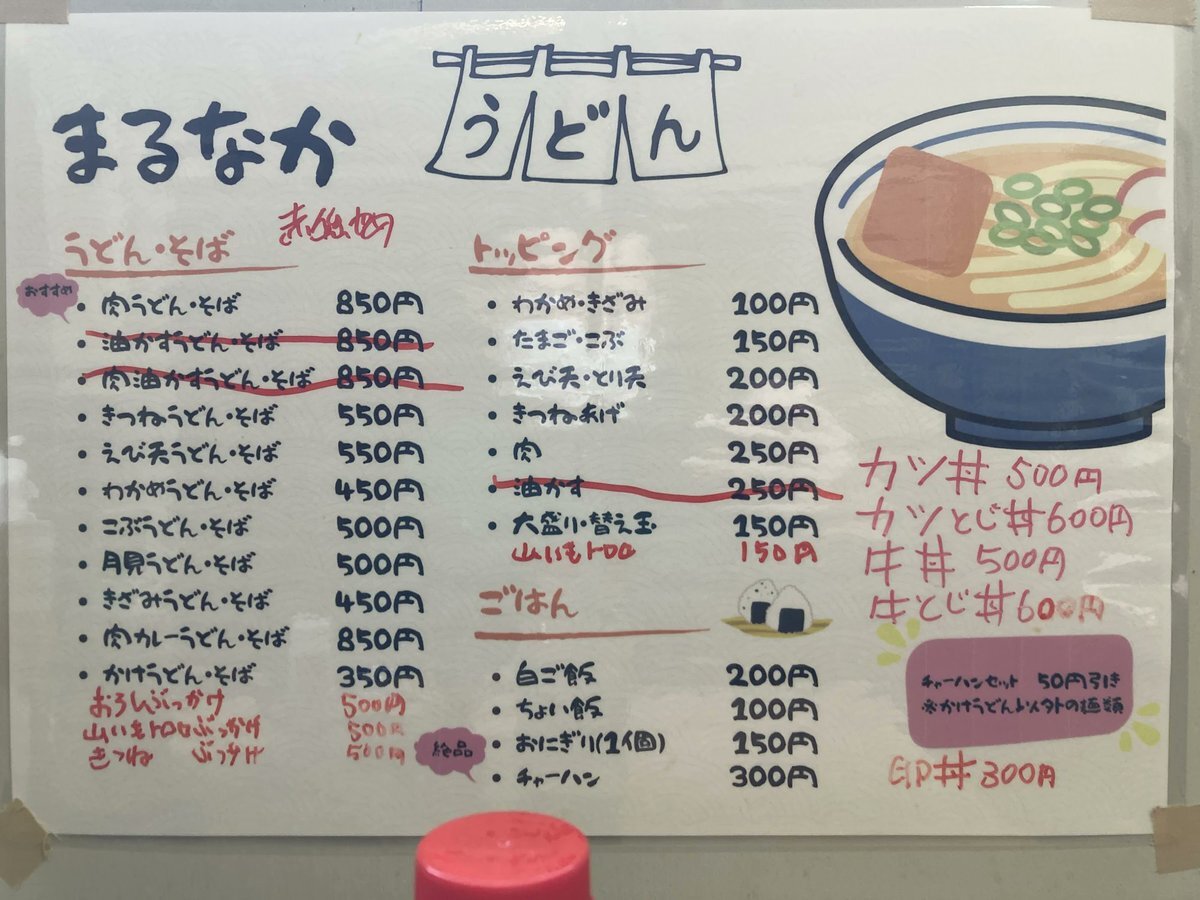 まるなか
うどん
うどん・そば
おすすめ
・肉うどん・そば 850円
・油かすうどん・そば 850円
・肉油かすうどん・そば 850円
・きつねうどん・そば 550円
・えび天うどん・そば 550円
・わかめうどん・そば 450円
・こぶうどん・そば 500円
・月見うどん・そば 500円
・きざみうどん・そば 450円
・肉カレーうどん・そば 850円
・かけうどん・そば 350円
おろしぶっかけ 500円
山いもトロロぶっかけ 500円
きつね ぶっかけ 500円
トッピング
・わかめ・きざみ 100円
・たまご・こぶ 150円
・えび天・とり天 200円
・きつねあげ 200円
・肉 250円
・油かす 250円
・大盛り・替え玉 150円
山いもトロロ 150円
ごはん
・白ご飯 200円
・ちょい飯 100円
・おにぎり(1個) 150円
絶品
・チャーハン 300円
カツ丼 500円
カツとじ丼600円
牛丼 500円
牛とじ丼600円
チャーハンセット 50円引き
※かけうどん以外の麺類
卵丼300円